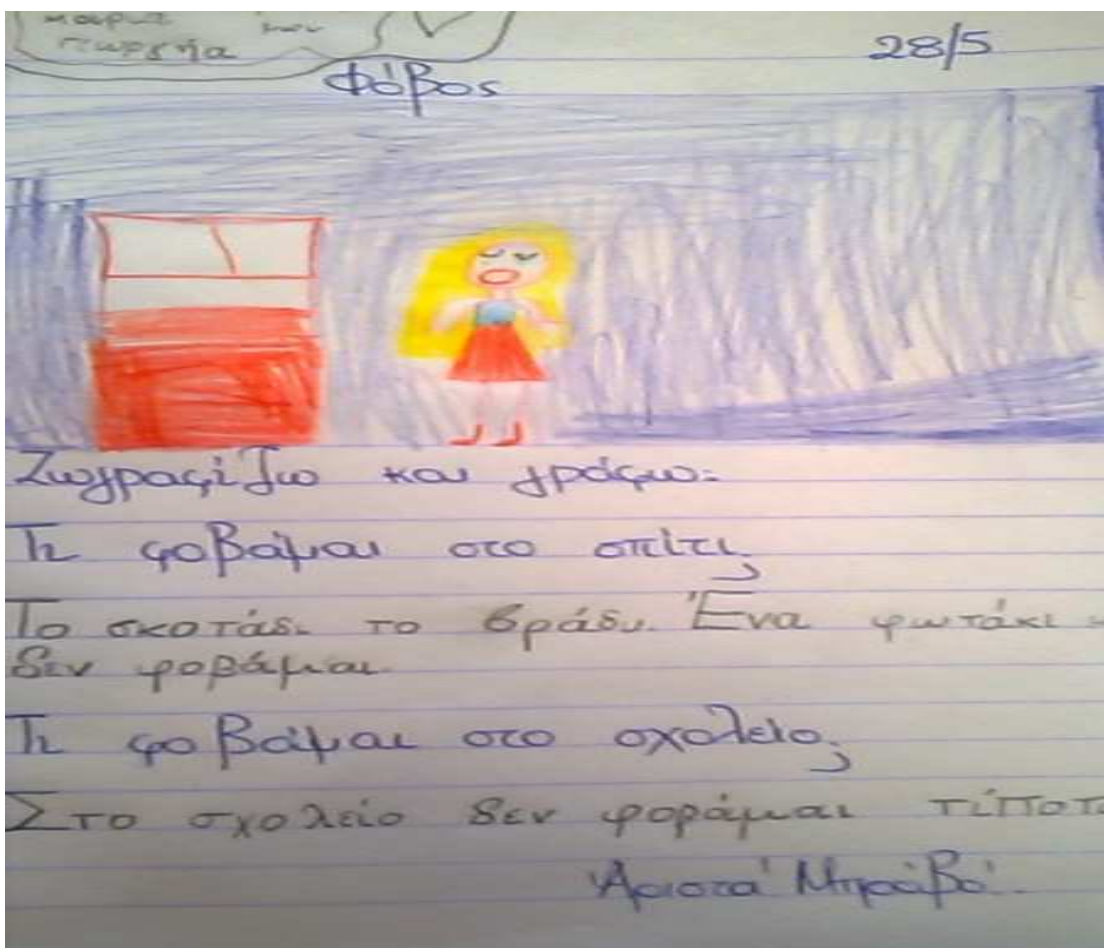 μου
γεωργήα
28/5
Φόβος
Ζωγραφίζω και γράφω:
Τι φοβάμαι στο σπίτι;
Το σκοτάδι το βράδυ. Ένα φωτάκι
δεν φοράμαι.
Τι φοβάμαι στο σχολείο;
Στο σχολείο δεν φοράμαι τίποτ
Άριστα Μπράβο